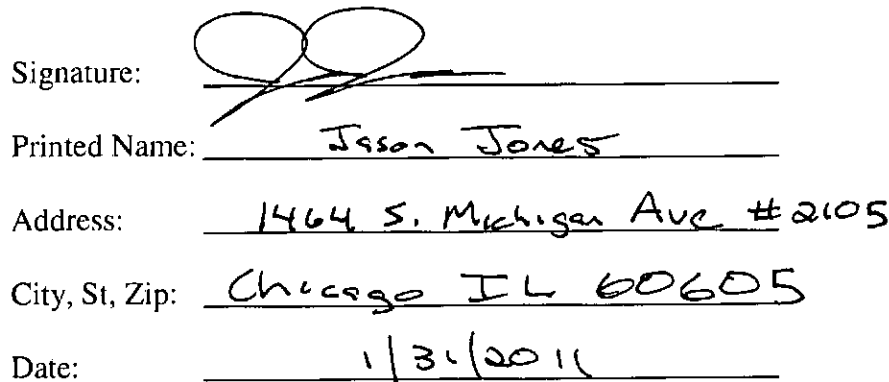 Signature:
Printed Name: Jason Jones
Address: 1464 S. Michigan Ave #2105
City, St, Zip: Chicago IL 60605
Date: 1/31/2011